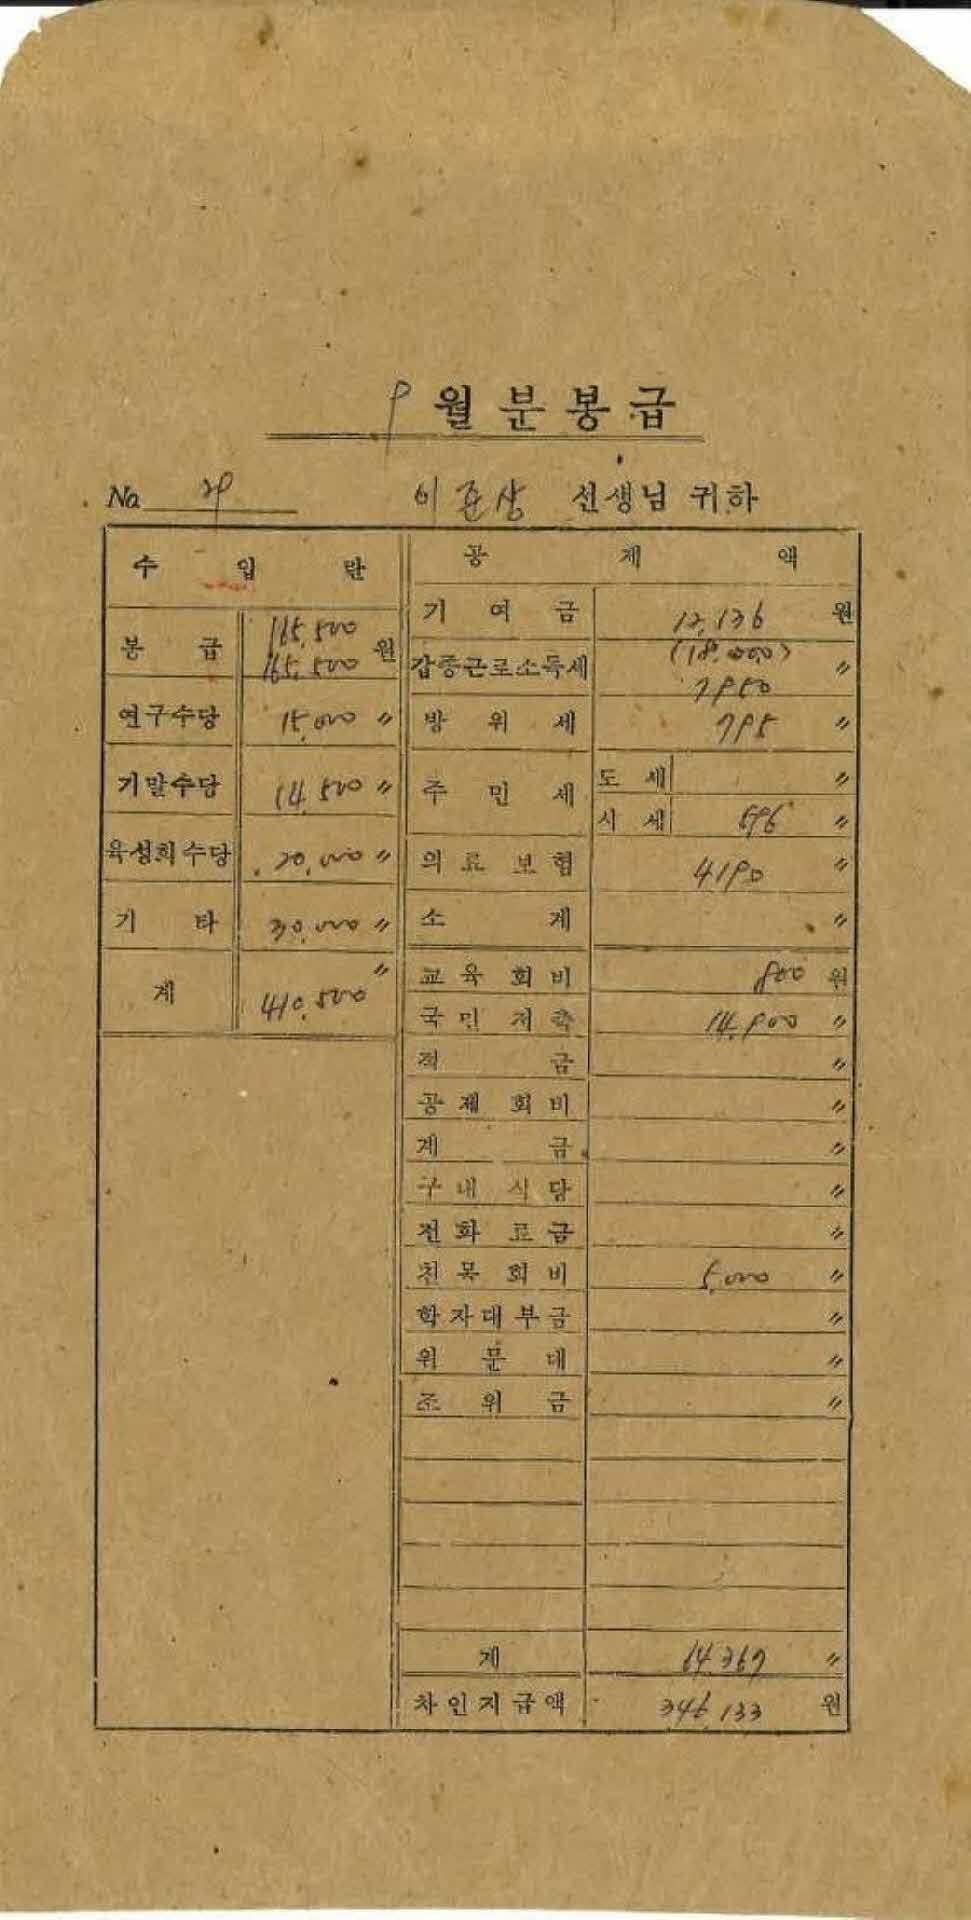 9 월 분 봉 급
No. 29 이준상 선생님 귀하
수 입 란
봉 급 165,500
165,500 원
연구수당 15,000 〃
기말수당 14,500 〃
육성회수당 20,000 〃
기 타 30,000 〃
계 410,500 〃
공 제 액
기 여 금 12,136 원
갑종근로소득세 (18,000) 〃
7950
방 위 세 795 〃
주 민 세 도 세 〃
시 세 596 〃
의 료 보 험 4190 〃
소 계 〃
교 육 회 비 800 원
국 민 저 축 14,900 〃
적 금 〃
공 제 회 비 〃
계 금 〃
구 내 식 당 〃
전 화 료 금 〃
친 목 회 비 5,000 〃
학 자 대 부 금 〃
위 문 대 〃
조 위 금 〃
계 64,367 〃
차 인 지 급 액 346,133 원